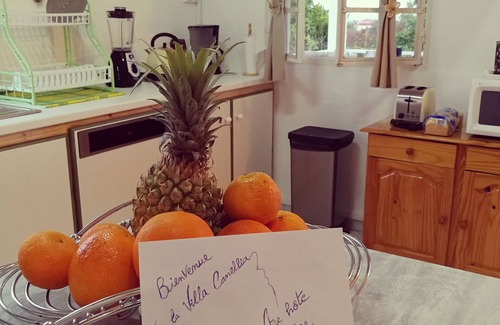 Bienvenue
la Villa Camellia
hôte